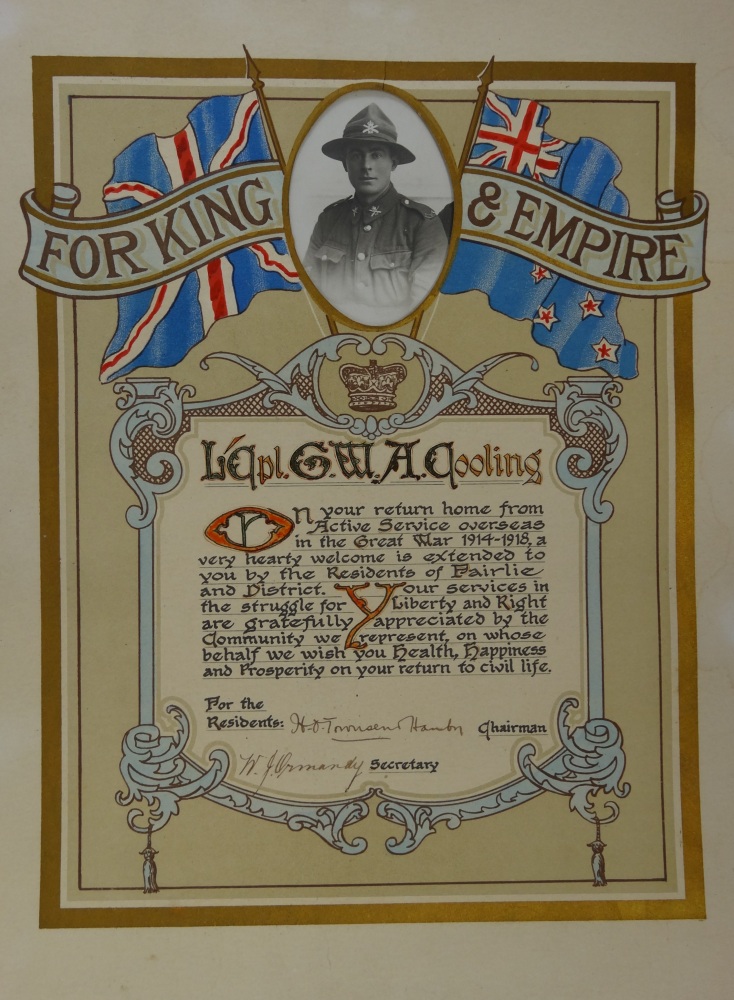 FOR KING & EMPIRE
L'Cpl. G. W. A. Cooling
On your return home from
Active Service overseas
in the Great War 1914-1918, a
very hearty welcome is extended to
you by the Residents of Fairlie
and District. Your services in
the struggle for Liberty and Right
are gratefully appreciated by the
Community we represent, on whose
behalf we wish you Health, Happiness
and Prosperity on your return to civil life.
For the
Residents: Chairman
W. J. Ormandy Secretary